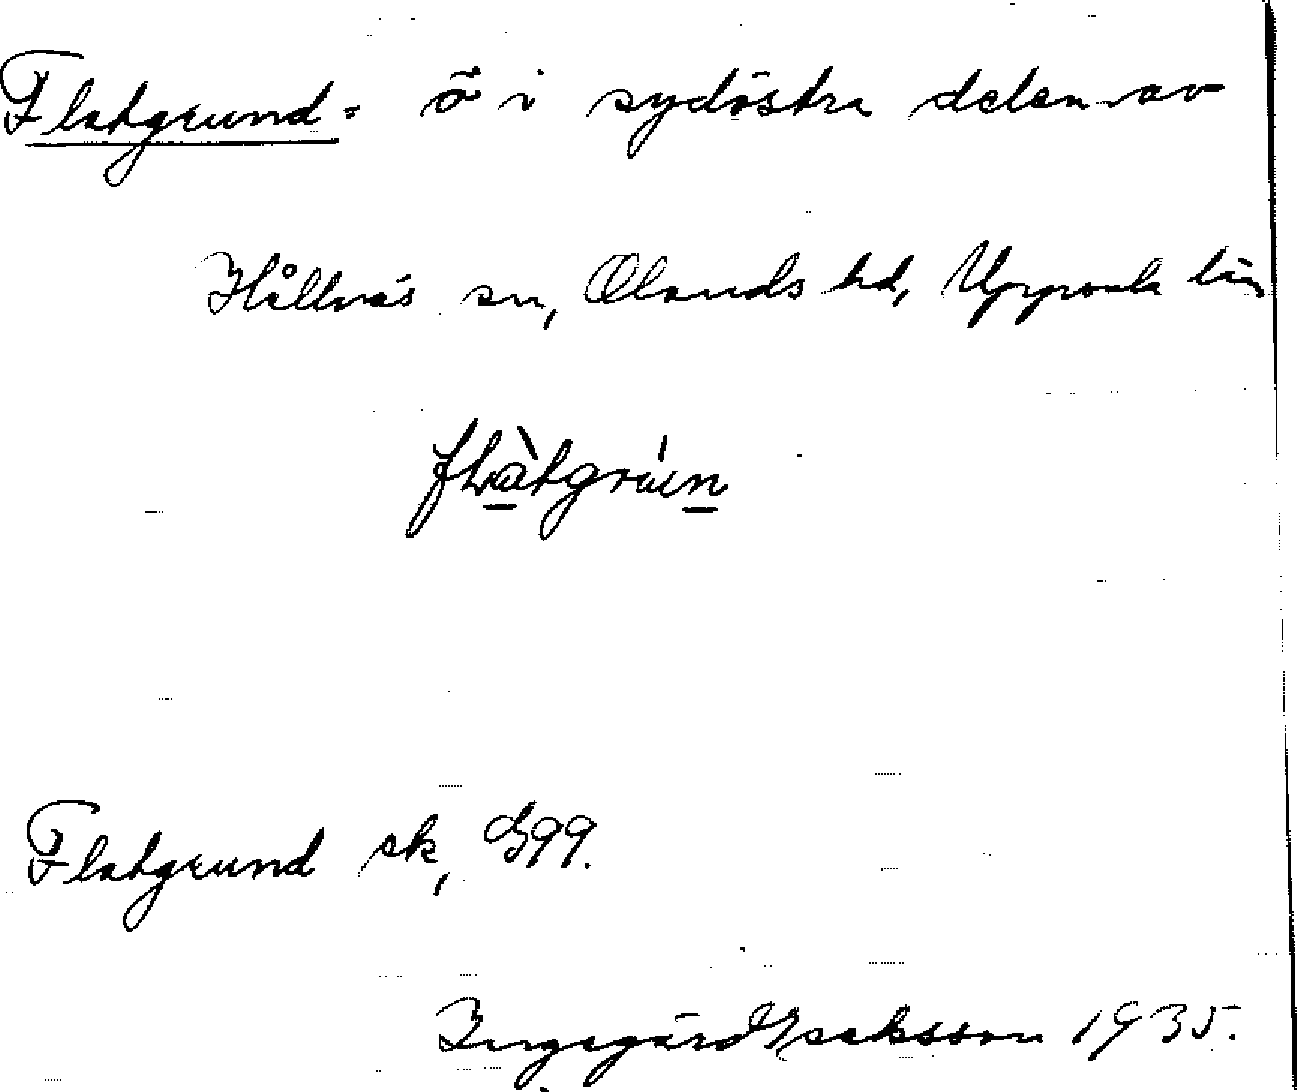 Flatgrund = ö i sydöstra delen av
Hållnäs sn, Olands hd, Uppsala län
flàtgrúen
Flatgrund ek, G99.
Ingegärd Isaksson 1935.